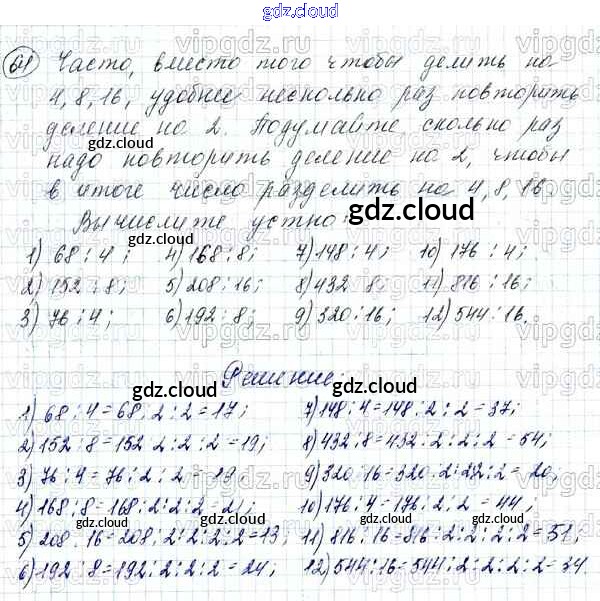 gdz.cloud
64 Часто, вместо того чтобы делить на
4, 8, 16, удобнее несколько раз повторить
деление на 2. Подумайте, сколько раз
надо повторить деление на 2, чтобы
в итоге число разделить на 4, 8, 16.
Вычислите устно:
1) 68 : 4; 4) 168 : 8; 7) 148 : 4; 10) 176 : 4;
2) 152 : 8; 5) 208 : 16; 8) 432 : 8; 11) 816 : 16;
3) 76 : 4; 6) 192 : 8; 9) 320 : 16; 12) 544 : 16.
Решение:
1) 68 : 4 = 68 : 2 : 2 = 17; 7) 148 : 4 = 148 : 2 : 2 = 37;
2) 152 : 8 = 152 : 2 : 2 : 2 = 19; 8) 432 : 8 = 432 : 2 : 2 : 2 = 54;
3) 76 : 4 = 76 : 2 : 2 = 19 9) 320 : 16 = 320 : 2 : 2 : 2 : 2 = 20;
4) 168 : 8 = 168 : 2 : 2 : 2 = 21; 10) 176 : 4 = 176 : 2 : 2 = 44;
5) 208 : 16 = 208 : 2 : 2 : 2 : 2 = 13; 11) 816 : 16 = 816 : 2 : 2 : 2 : 2 = 51;
6) 192 : 8 = 192 : 2 : 2 : 2 = 24; 12) 544 : 16 = 544 : 2 : 2 : 2 : 2 = 34.